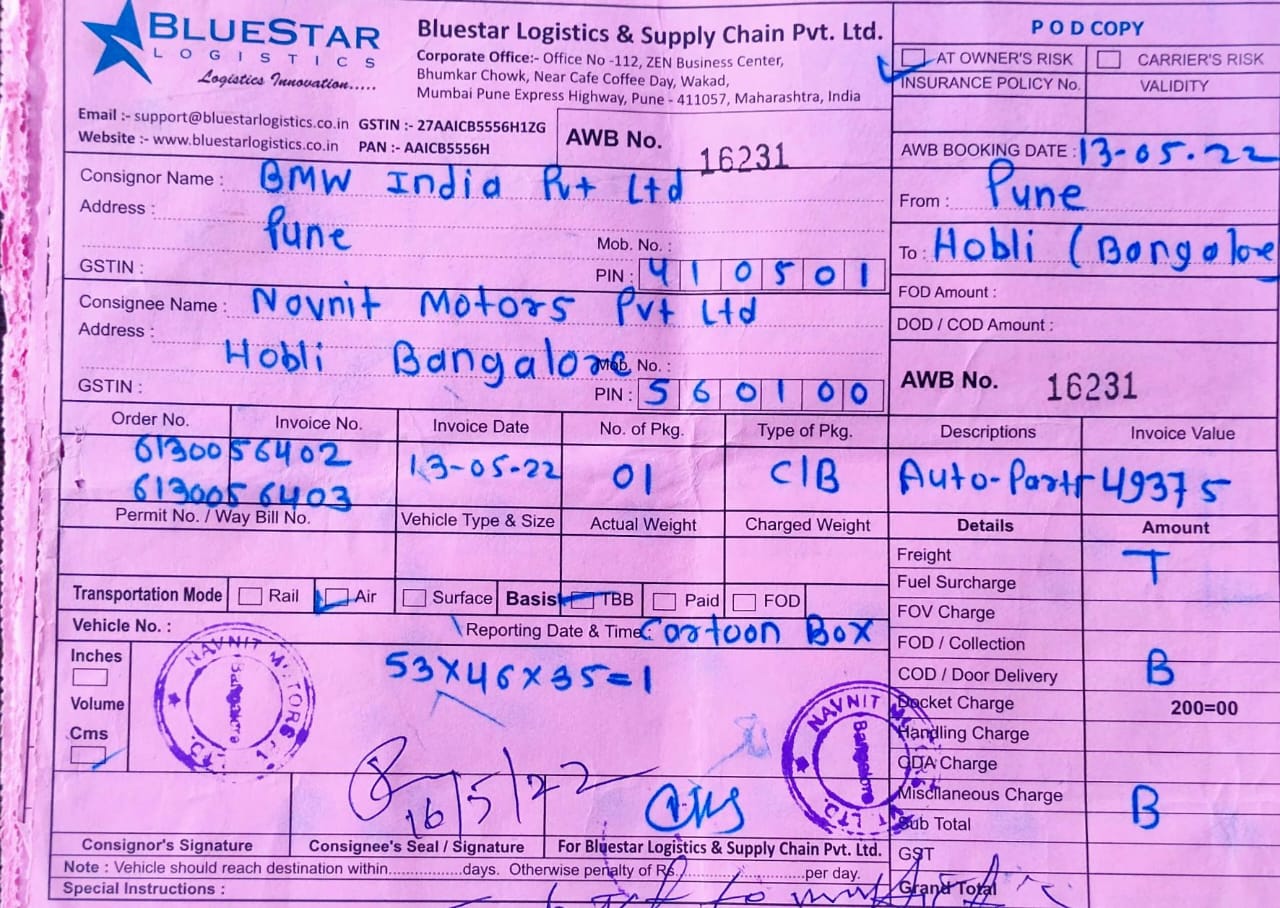 BLUESTAR
LOGISTICS
Logistics Innovation.....
Bluestar Logistics & Supply Chain Pvt. Ltd.
Corporate Office:- Office No -112, ZEN Business Center,
Bhumkar Chowk, Near Cafe Coffee Day, Wakad,
Mumbai Pune Express Highway, Pune - 411057, Maharashtra, India
Email :- support@bluestarlogistics.co.in GSTIN :- 27AAICB5556H1ZG
Website :- www.bluestarlogistics.co.in PAN :- AAICB5556H
AWB No. 16231
POD COPY
AT OWNER'S RISK CARRIER'S RISK
INSURANCE POLICY No. VALIDITY
AWB BOOKING DATE : 13-05-22
From : Pune
To : Hobli (Bangalore
FOD Amount :
DOD / COD Amount :
AWB No. 16231
Consignor Name : BMW India Pvt Ltd
Address :
Pune
Mob. No. :
GSTIN : PIN : 410501
Consignee Name : Navnit Motors Pvt Ltd
Address :
Hobli Bangalore Mob. No. :
GSTIN : PIN : 560100
Order No. Invoice No. Invoice Date No. of Pkg. Type of Pkg. Descriptions Invoice Value
6130056402
6130056403
13-05-22 01 C/B Auto-Part 49375
Permit No. / Way Bill No. Vehicle Type & Size Actual Weight Charged Weight Details Amount
Transportation Mode Rail Air Surface Basis TBB Paid FOD
Vehicle No. : Reporting Date & Time: Cartoon Box
Inches
Volume
Cms
53×46×35=1
NAVNIT MOTORS
Bangalore
16/5/22
NAVNIT
Bangalore
LTD.
Freight T
Fuel Surcharge
FOV Charge
FOD / Collection
COD / Door Delivery B
Docket Charge 200=00
Handling Charge
ODA Charge
Miscllaneous Charge B
Sub Total
GST
Grand Total
Consignor's Signature Consignee's Seal / Signature For Bluestar Logistics & Supply Chain Pvt. Ltd.
Note : Vehicle should reach destination within................days. Otherwise penalty of Rs..........................per day.
Special Instructions :